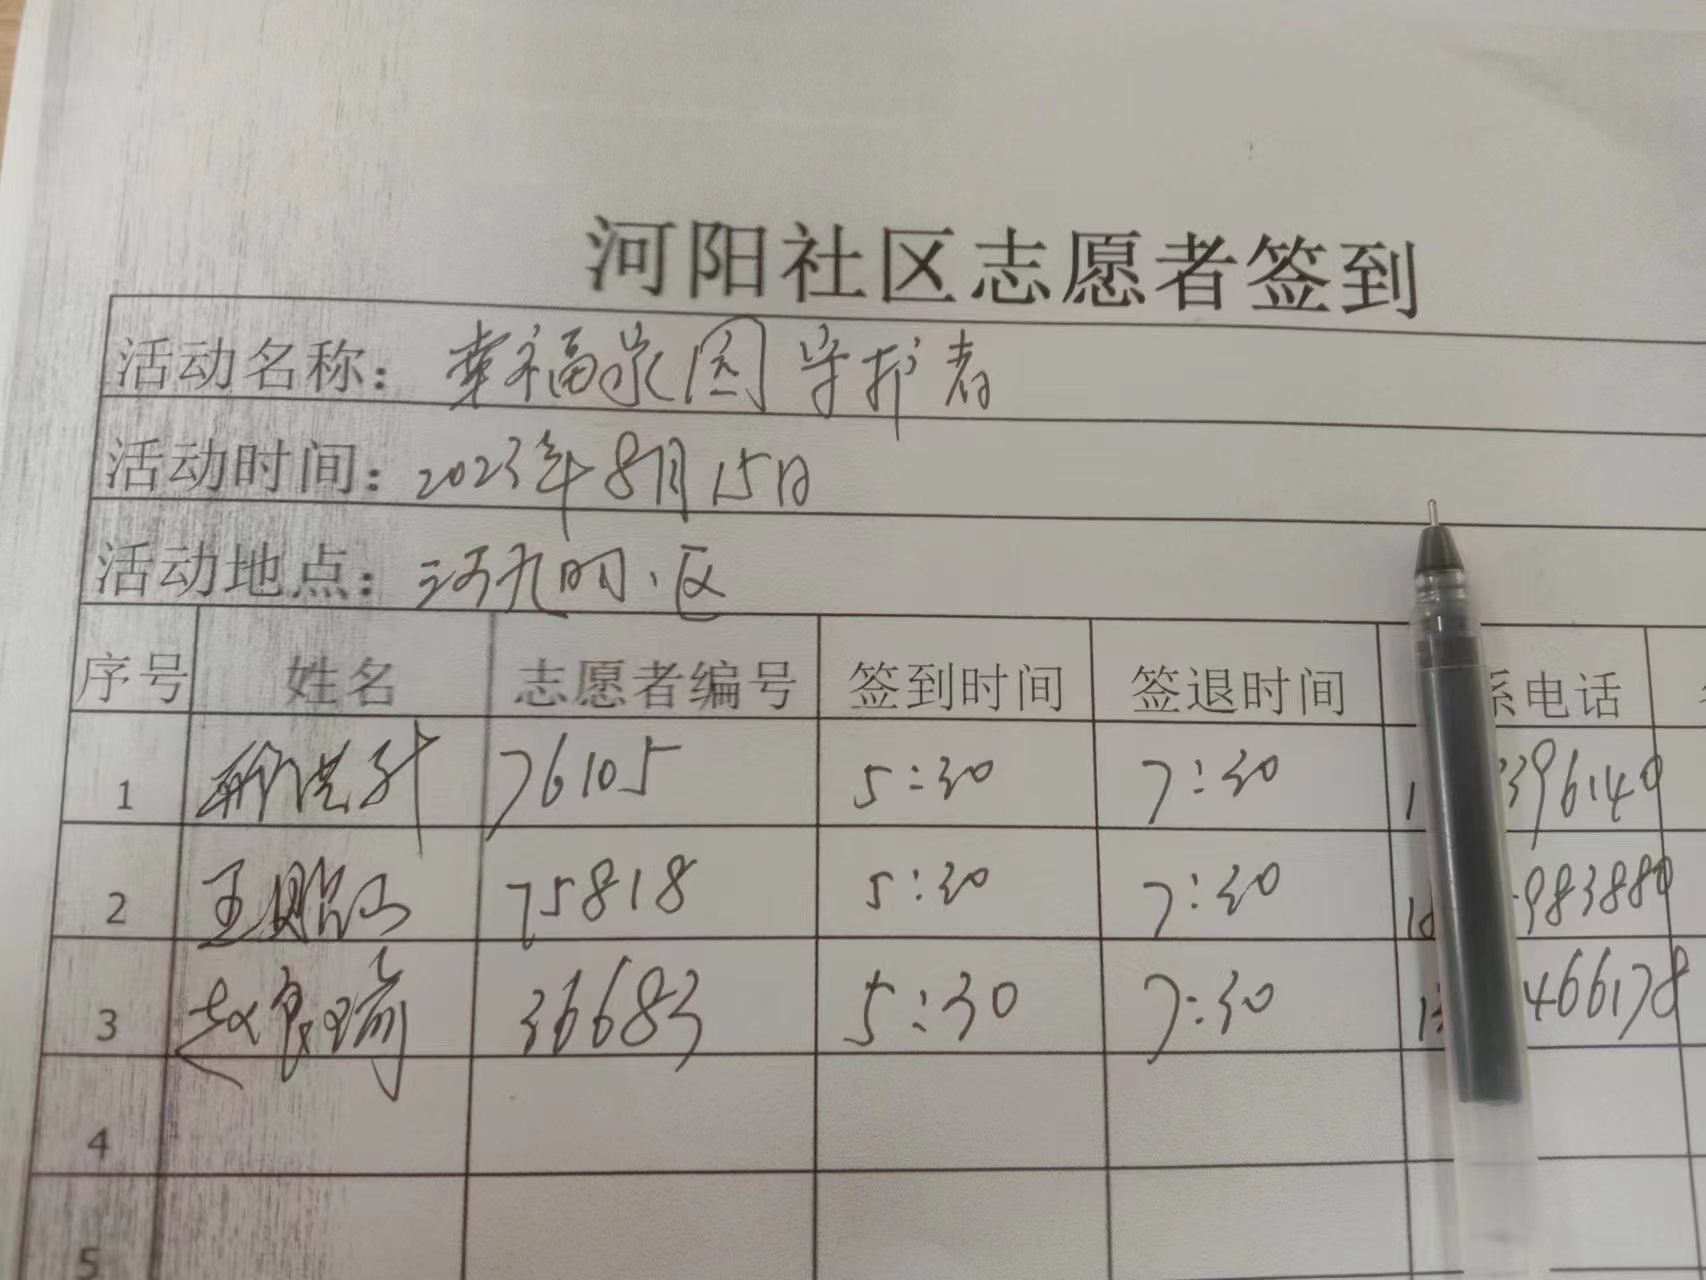 河阳社区志愿者签到
活动名称：幸福家园守护者
活动时间：2023年8月15日
活动地点：河 阳小区
序号 姓名 志愿者编号 签到时间 签退时间 系电话
1 76105 5:30 7:30 1 396140
2 王 75818 5:30 7:30 18 983880
3 赵良瑜 36683 5:30 7:30 13 466178
4
5